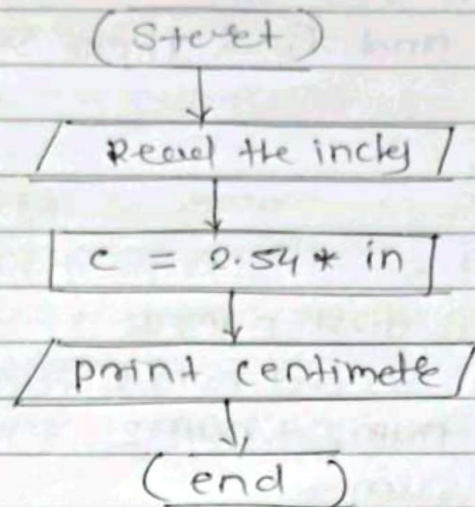 (Start)
Read the inches
c = 2.54 * in
print centimete
(end)